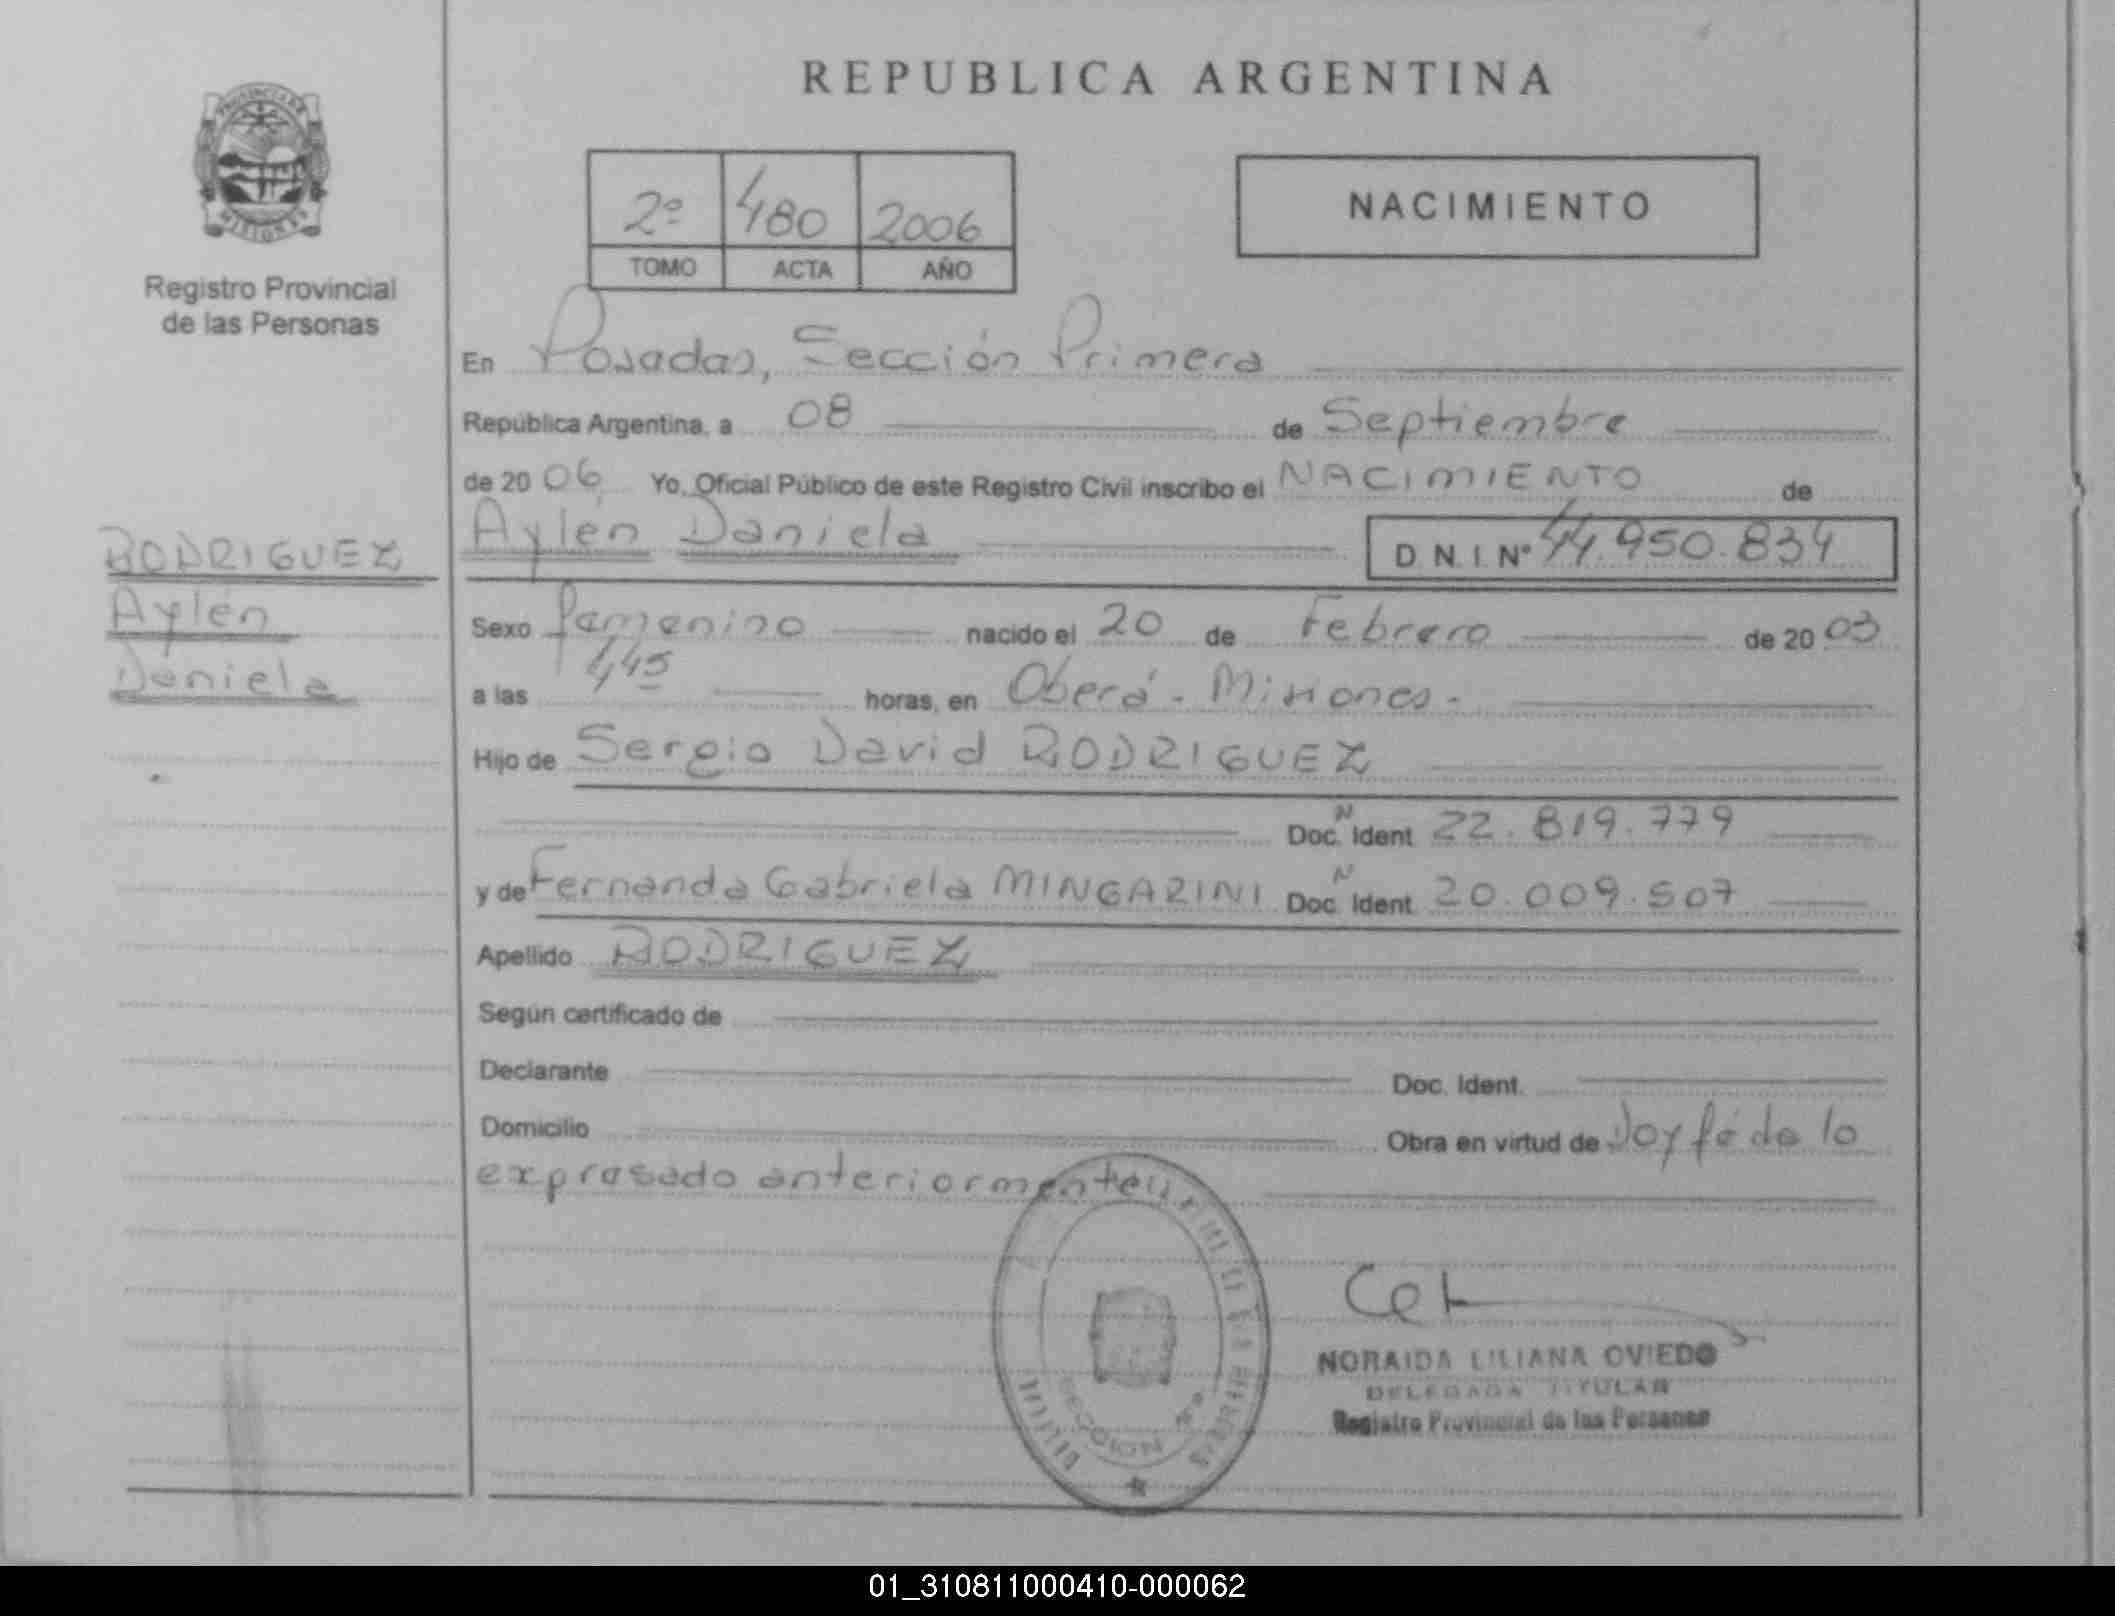 REPUBLICA ARGENTINA
PROVINCIA DE
MISIONES
Registro Provincial
de las Personas
2º 480 2006
TOMO ACTA AÑO
NACIMIENTO
En Posadas, Sección Primera
República Argentina, a 08 de Septiembre
de 20 06 Yo, Oficial Público de este Registro Civil inscribo el NACIMIENTO de
Aylén Daniela D. N. I. Nº 44.950.834
RODRIGUEZ
Aylén
Daniela
Sexo femenino nacido el 20 de Febrero de 20 03
a las 4,45 horas, en Oberá - Misiones -
Hijo de Sergio David RODRIGUEZ
Doc. Ident. N 22.819.779
y de Fernanda Gabriela MINGARINI Doc. Ident. N 20.009.507
Apellido RODRIGUEZ
Según certificado de
Declarante Doc. Ident.
Domicilio Obra en virtud de Doy fé de lo
expresado anteriormente
SECCION 1ra
NORAIDA LILIANA OVIEDO
DELEGADA TITULAR
Registro Provincial de las Personas
01_310811000410-000062